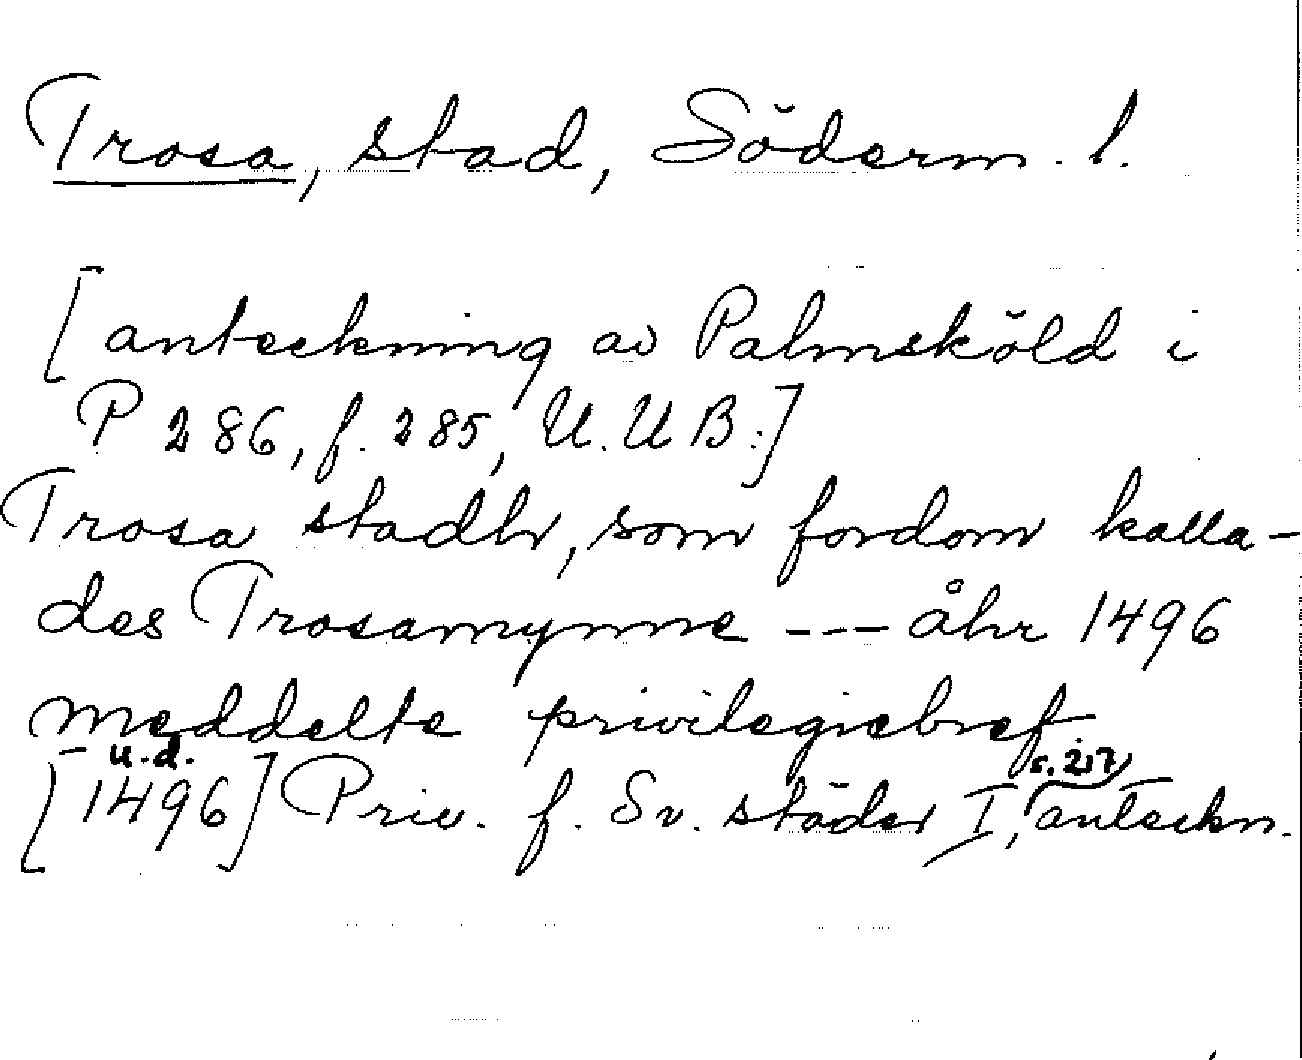 Trosa, stad, Söderm. l.
[anteckning av Palmsköld i
P 286, f. 285, U.U.B.]
Trosa stadh, som fordom kalla-
des Trosamynne --- åhr 1496
meddelte privilegiebref
[1496] u.d. Priv. f. Sv. städer I, s. 217, anteckn.